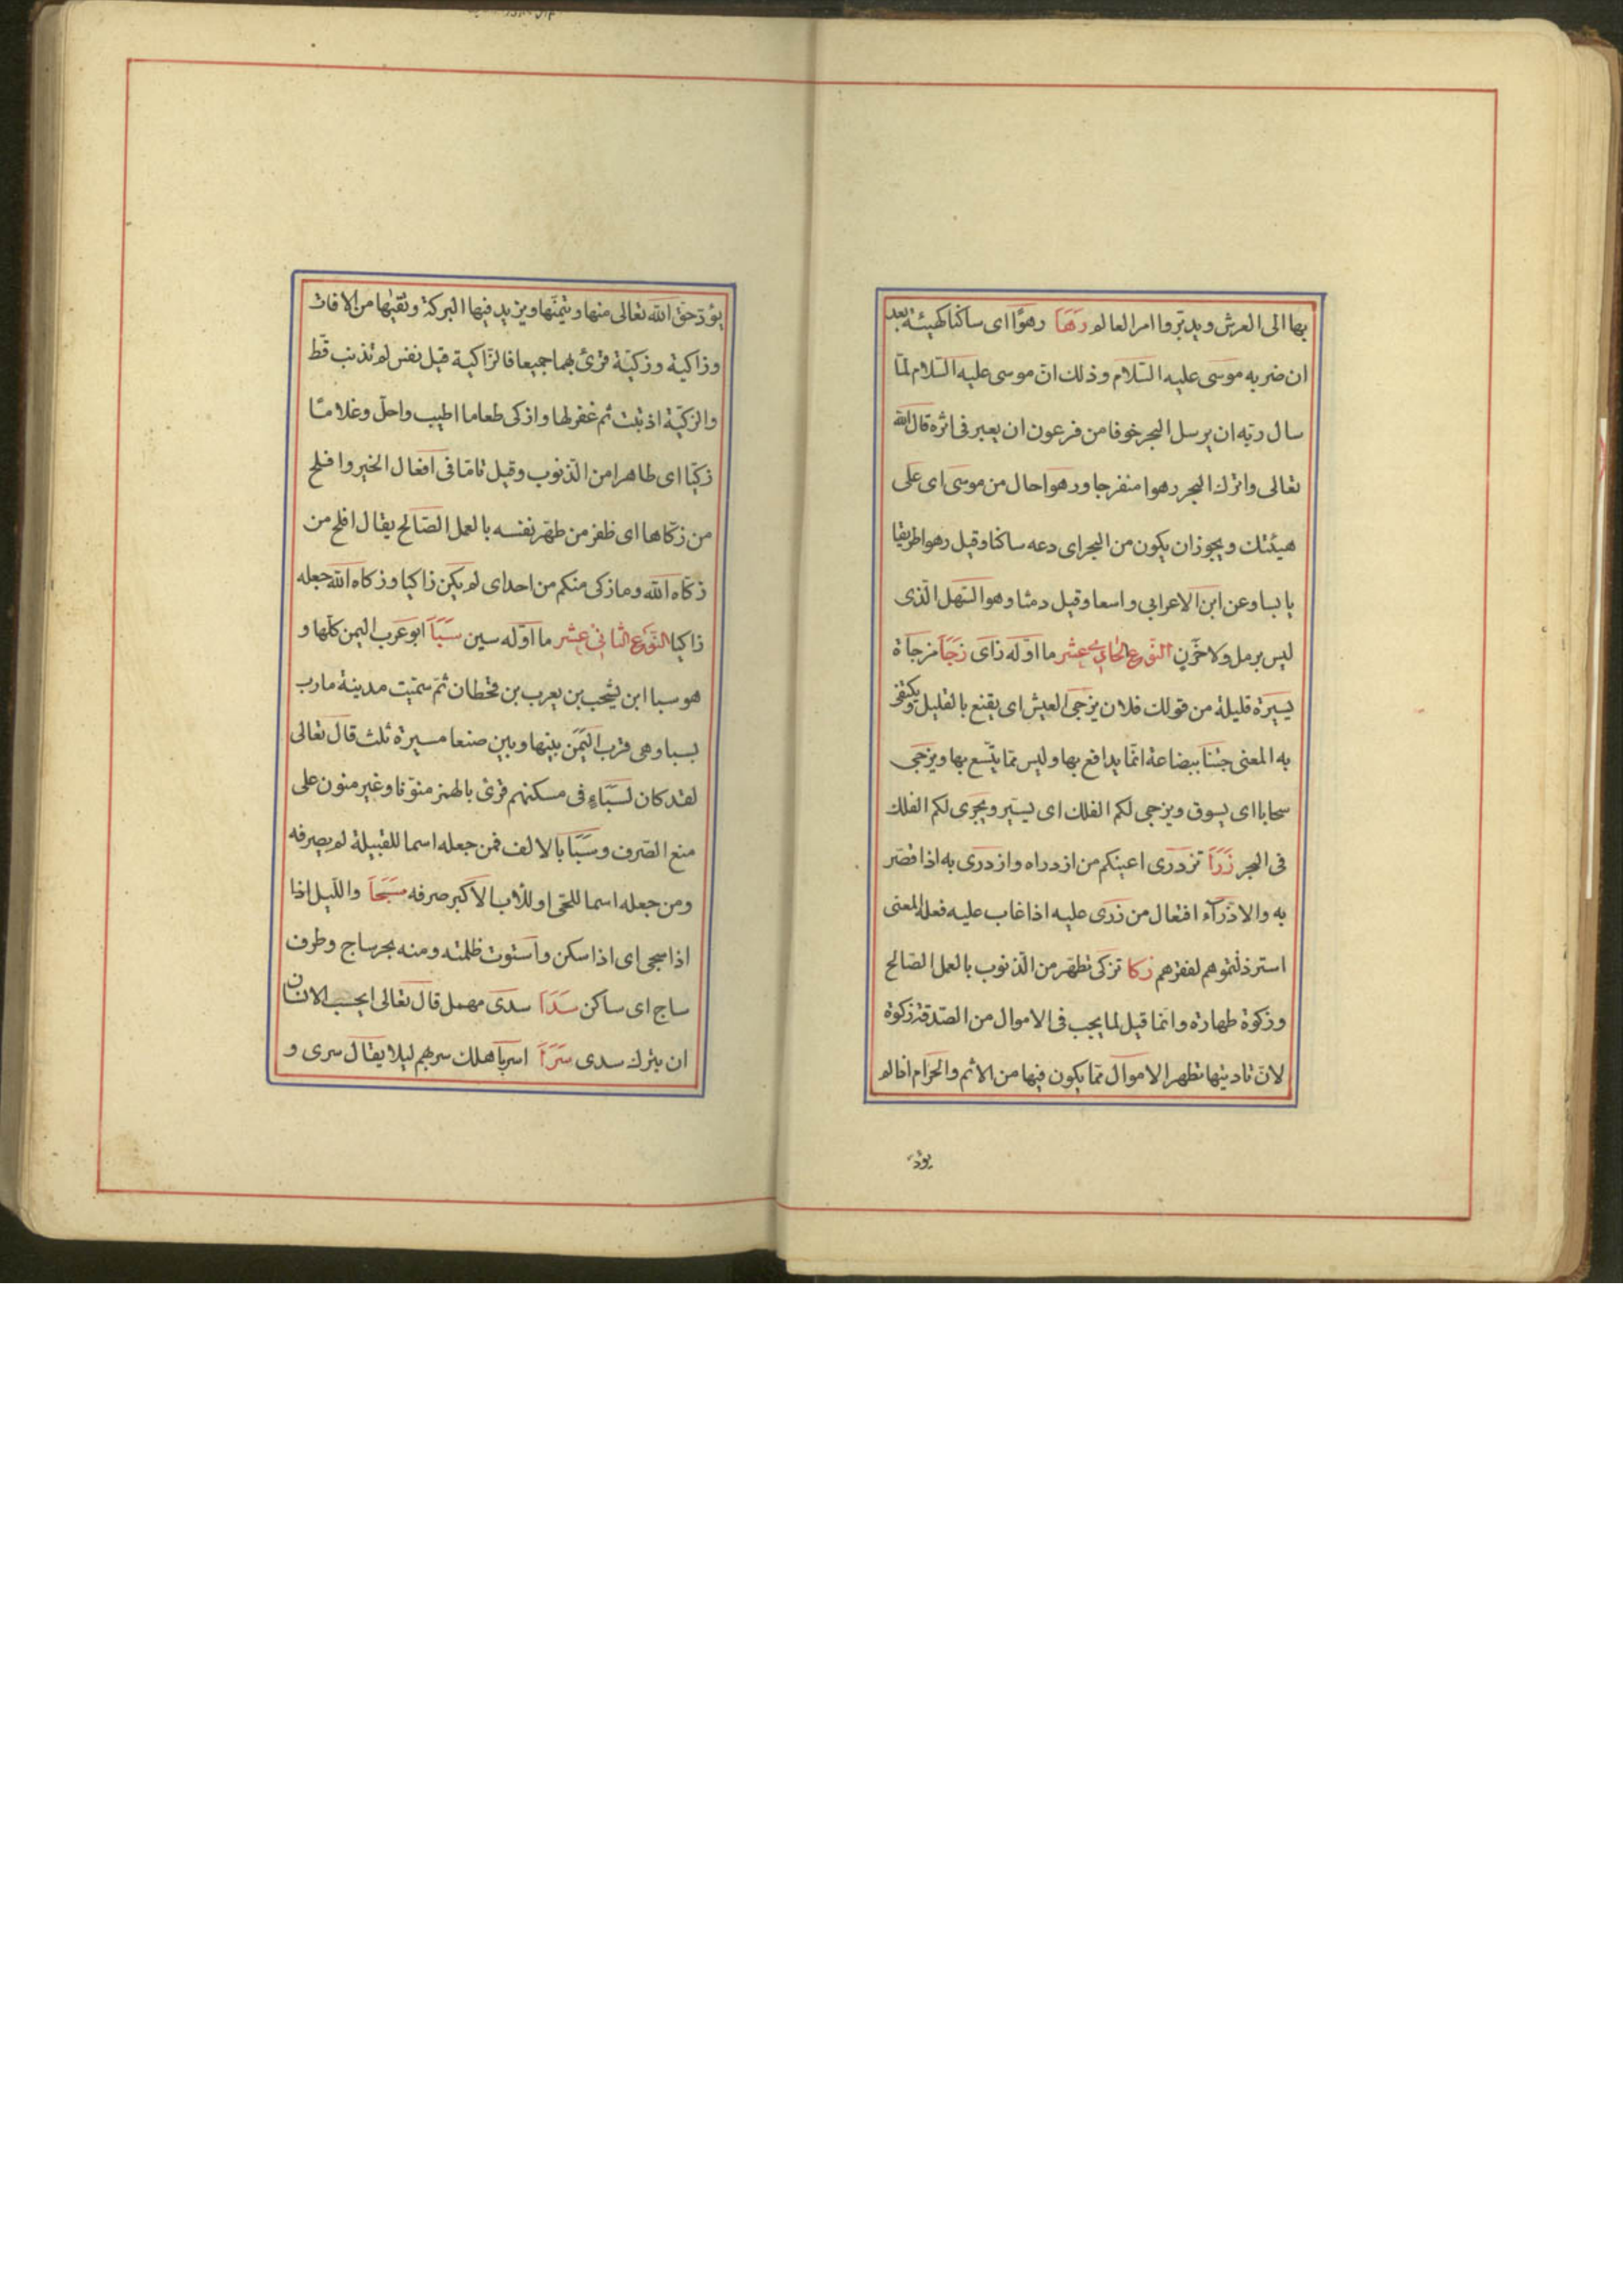 بها الى العرش ويدبّروا امر العالم رَهَا رهوًا اى ساكنا كهيئة بعد
ان ضربه موسى عليه السّلام وذلك انّ موسى عليه السّلام لمّا
سال ربّه ان يرسل البحر خوفا من فرعون ان يعبر فى اثره قال الله
تعالى واترك البحر رهوا منفرجا ورهوا حال من موسى اى على
هيئتك ويجوز ان يكون من البحر اى دعه ساكنا وقيل رهوا طريقا
يابسا وعن ابن الاعرابى واسعا وقيل دمثا وهو السّهل الّذى
ليس برمل ولا حزن النّوع الحادي عشر ما اوّله زاى زَجَاَ مزجاة
يسيرة قليلة من قولك فلان يزجى العيش اى يقنع بالقليل ويكتفى
به المعنى جئنا ببضاعة انّما يدافع بها وليس ممّا يتّسع بها ويزجى
سحابا اى يسوق ويزجى لكم الفلك اى يسيّر ويجرى لكم الفلك
فى البحر زَرَاَ تزدرى اعينكم من ازدراه وازدرى به اذا قصّر
به والازدرآء افتعال من زرى عليه اذا عاب عليه فعله المعنى
استرذلتموهم لفقرهم زكا تزكى تطهّر من الذّنوب بالعمل الصّالح
وزكوة طهارة وانّما قيل لما يجب فى الاموال من الصّدقة زكوة
لانّ تاديتها تطهر الاموال ممّا يكون فيها من الاثم والحرام اذا لم
يؤدّ
يؤدّ حقّ الله تعالى منها ويتمّنها ويزيد فيها البركة وتقيها من الافات
وزاكية وزكيّة قرئ بهما جميعا فالزّاكية قيل نفس لم تذنب قط
والزكيّة اذنبت ثم غفر لها وازكى طعاما اطيب واحلّ وغلامًا
زكيّا اى طاهرا من الذّنوب وقيل تامّا فى افعال الخير وافلح
من زكّاها اى ظفر من طهّر نفسه بالعمل الصّالح يقال افلح من
زكّاه الله وما زكى منكم من احد اى لم يكن زاكيا وزكاه الله جعله
زاكيا النّوع الثّانى عشر ما اوّله سين سَبَاَ ابو عرب اليمن كلّها و
هو سبا ابن يشجب بن يعرب بن قحطان ثمّ سمّيت مدينة مارب
بسبا وهى قرب اليمن بينها وبين صنعا مسيرة ثلث قال تعالى
لقد كان لسبّاءٍ فى مسكنهم قرئ بالهمز منوّنا وغير منون على
منع الصّرف وسَبَا بالالف فمن جعله اسما للقبيلة لم يصرفه
ومن جعله اسما للحىّ او للأب الاكبر صرفه سَجَاَ واللّيل اذا
اذا سجى اى اذا سكن واستوت ظلمته ومنه بحر ساج وطرف
ساج اى ساكن سَدَاَ سدى مهمل قال تعالى ايحسب الانسان
ان يترك سدى سَرَاَ اسر باهلك سر بهم ليلا يقال سرى و